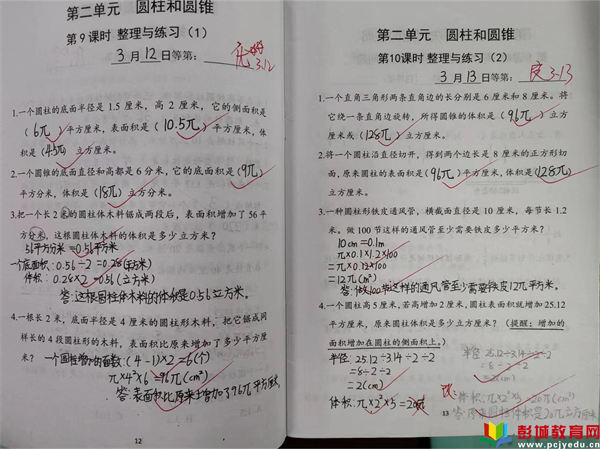 第二单元 圆柱和圆锥
第9课时 整理与练习（1）
3月12日等第：
3.12
1.一个圆柱的底面半径是 1.5 厘米，高 2 厘米，它的侧面积是
（6π）平方厘米，表面积是（10.5π）平方厘米，体
积是（4.5π）立方厘米。
2.一个圆锥的底面直径和高都是 6 分米，它的底面积是（9π）
平方分米，体积是（18π）立方分米。
3.把一个长 2 米的圆柱体木料锯成两段后，表面积增加了 56 平
方分米，这根圆柱体木料的体积是多少立方米？
56平方分米=0.56平方米
一个底面积：0.56÷2=0.28(平方米)
体积：0.28×2=0.56(立方米)
答：这根圆柱体木料的体积是0.56立方米。
4.一根长 2 米，底面半径是 4 厘米的圆柱形木料，把它锯成同
样长的 4 段圆柱形的木料，表面积比原来增加了多少平方厘
米？ 一个圆柱增加的面数：(4-1)×2=6(个)
π×4²×6=96π(cm²)
答：表面积比原来增加了96π平方厘米。
12
第二单元 圆柱和圆锥
第10课时 整理与练习（2）
3月13日等第：
3.13
1.一个直角三角形两条直角边的长分别是 6 厘米和 8 厘米。将
它绕一条直角边旋转，所得圆锥的体积是（96π）立方
厘米或（128π）立方厘米。
2.将一个圆柱沿直径切开，得到两个边长是 8 厘米的正方形切
面，原来圆柱的表面积是（96π）平方厘米，体积是（128π）
立方厘米。
3.一种圆柱形铁皮通风管，横截面直径是 10 厘米，每节长 1.2
米，做 100 节这样的通风管至少需要铁皮多少平方米？
10cm=0.1m
π×0.1×1.2×100
=π×0.12×100
=12π(m²)
答：做100节这样的通风管至少需要铁皮12π平方米。
4.一个圆柱高 5 厘米，若高增加 2 厘米，圆柱表面积就增加 25.12
平方厘米，原来圆柱体积是多少立方厘米？（提醒：增加的
面积增加在圆柱的侧面积上。）
半径：25.12÷3.14÷2÷2
=8÷2÷2
=2(cm)
体积：π×2²×5=20π
半径 25.12÷3.14÷2÷2
=8÷2÷2
=2(cm)
π×2²×5=20π(cm³)
答：原来圆柱体积是20π立方厘米
13
彭城教育网
www.pcjyedu.cn